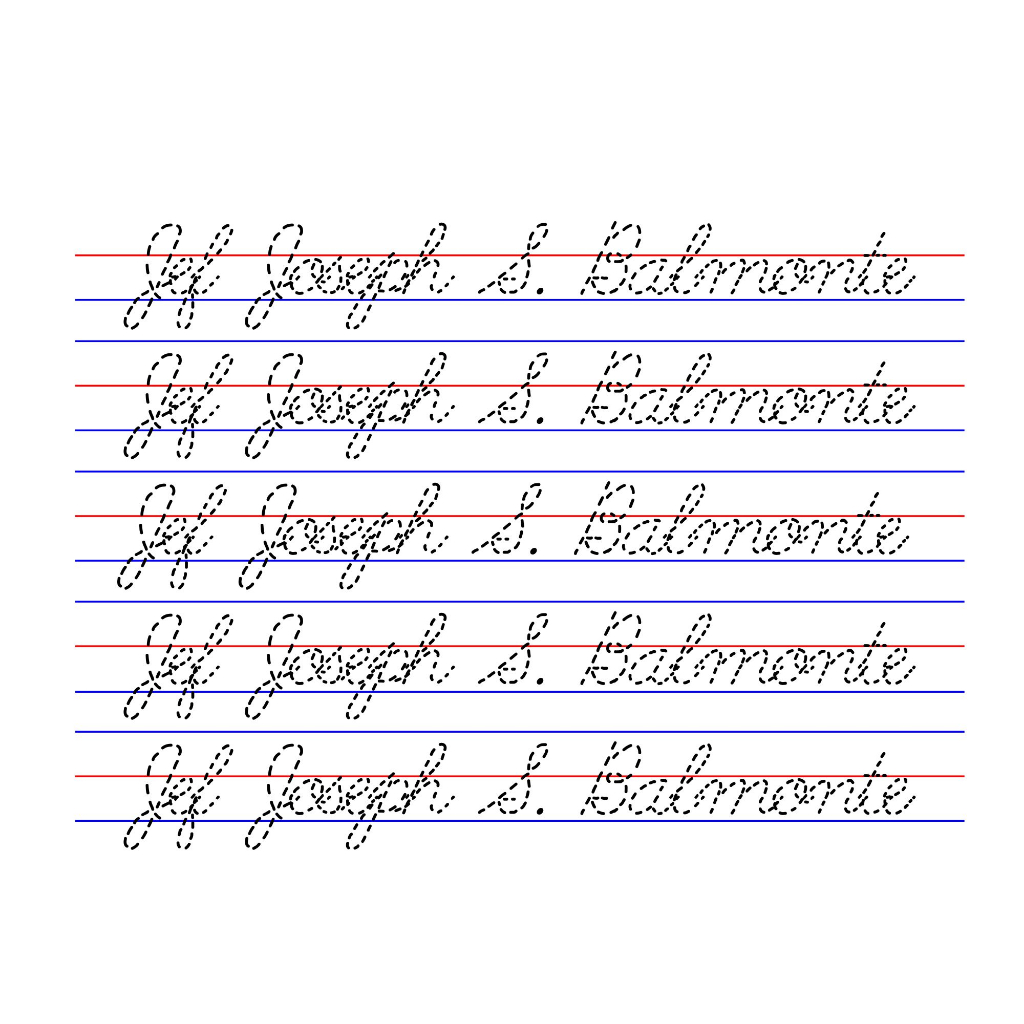 Jef Joseph S. Balmonte
Jef Joseph S. Balmonte
Jef Joseph S. Balmonte
Jef Joseph S. Balmonte
Jef Joseph S. Balmonte